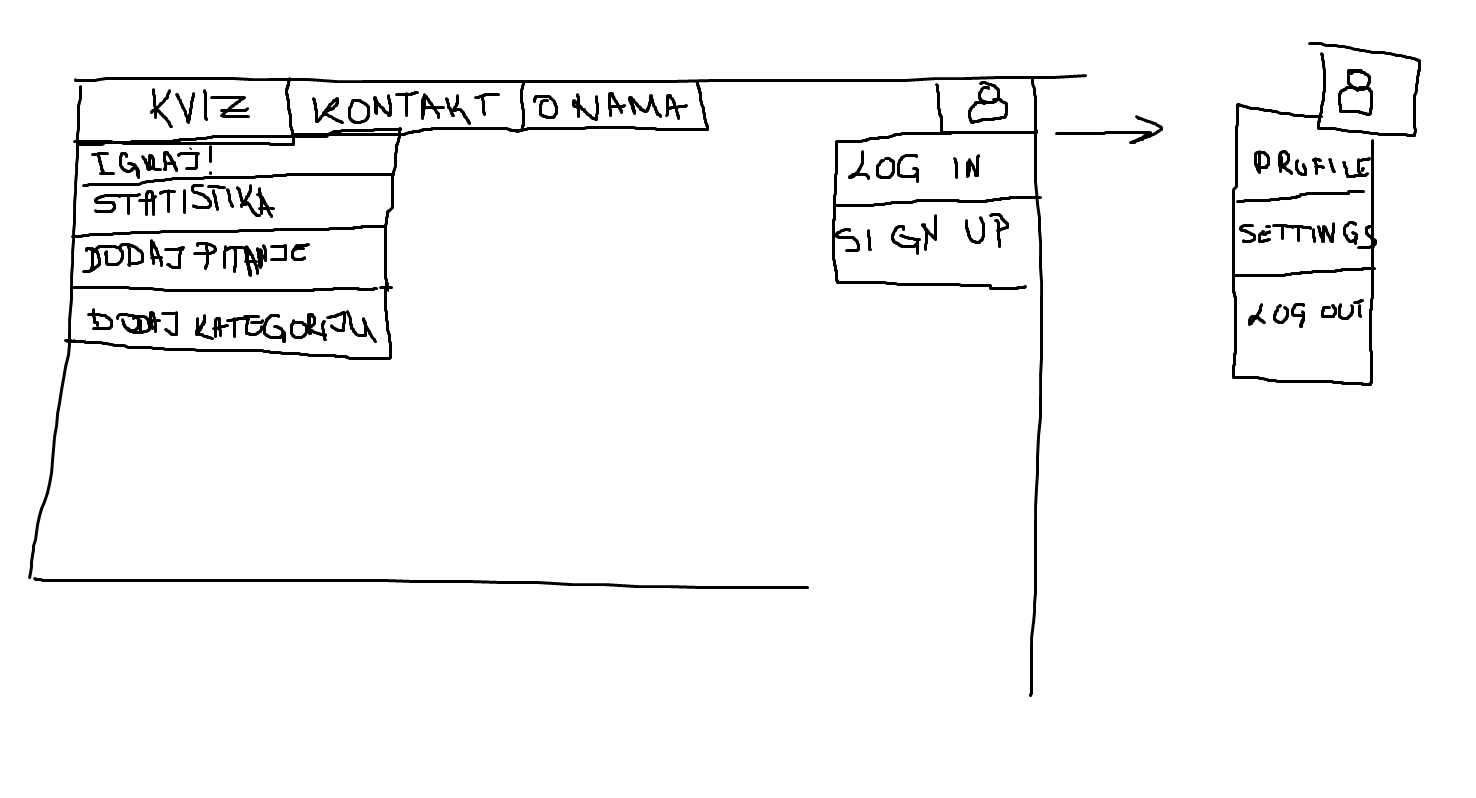 KVIZ KONTAKT O NAMA
IGRAJ!
STATISTIKA
DODAJ PITANJE
DODAJ KATEGORIJU
LOG IN
SIGN UP
PROFILE
SETTINGS
LOG OUT